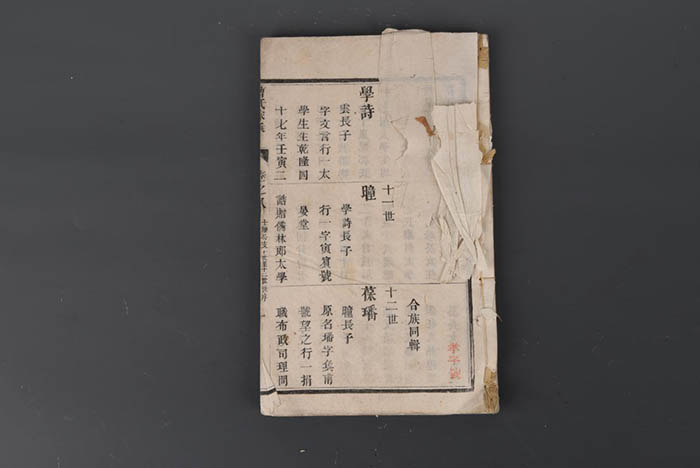 合族同輯
學詩
雲長子
字文言行一太
學生生乾隆四
十七年壬寅二
十一世
曈
學詩長子
行一字寅賓號
晏堂
誥贈儒林郎太學
十二世
葆璠
曈長子
原名璠字奐甫
號望之行一捐
職布政司理問
卷之八